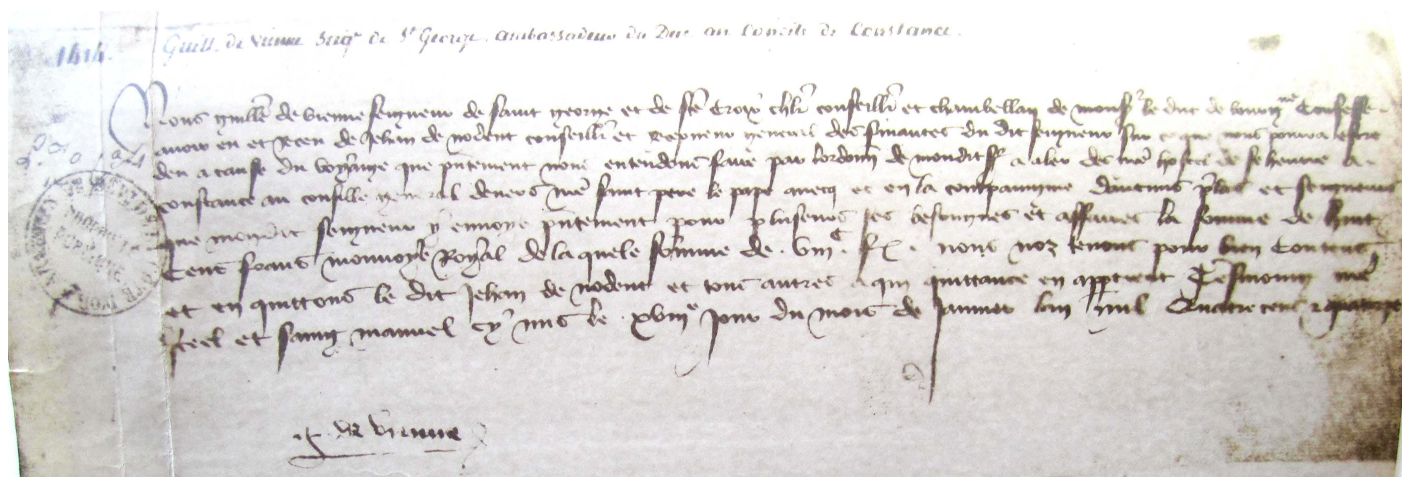 1414. Guill. de Vienne Seigr de St George, ambassadeur du Duc au Concile de Constance.
Nous guille de vienne seigneur de saint george et de ste Croix chlr conseillr et chambellan de monsr le duc de bourgne Confesse
avoir eu et receu de Jehan de nodent conseillr et Receveur general des finances du dit seigneur sur ce que nous pourra estre
deu a cause du voyaige que pntement nous entendons faire par lordonn de mondit sr a aler de nre hostel de a
constance au consille general devers nre saint pere le pape avecq et en la compaignie daucuns plas et seigneurs
que mondit seigneur y envoye pntement pour pluseurs ses besoignes et affaires la somme de huit
Cens frans monnoye Royal de laquele somme de . viijc . fr . nous noz tenons pour bien Contens
et en quittons le dit Jehan de nodent et tous autres a qui quittance en appartient Tesmoing mes
seel et saing manuel cy mis le . xviije jour du mois de janvier lan mil Quatre cens et quatorze
G. de Vienne